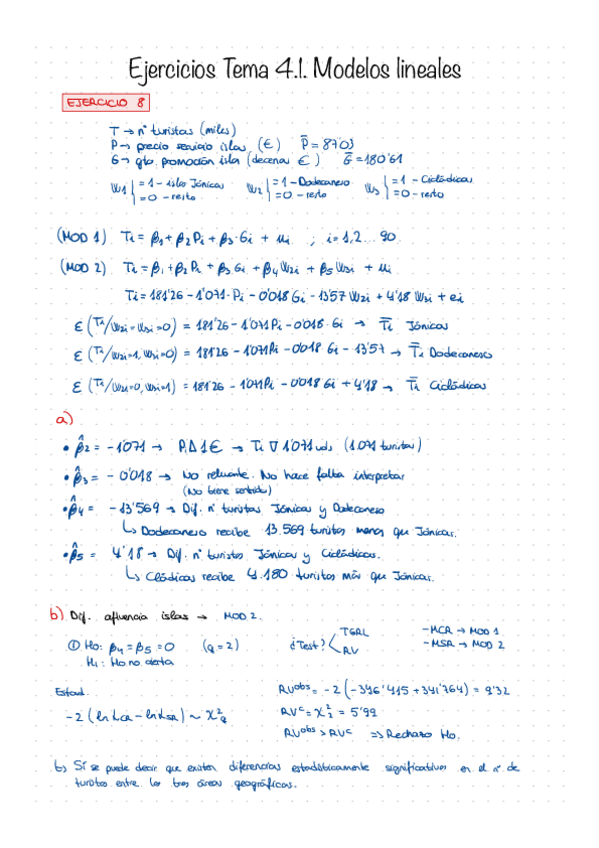 Ejercicios Tema 4.1. Modelos lineales
EJERCICIO 8
T → nº turistas (miles)
P → precio servicio islas (€) P̄ = 87'03
G → gto promoción isla (decenas €) Ḡ = 180'61
W1 { = 1 - islas Jónicas = 0 - resto W2 { = 1 - Dodecaneso = 0 - resto W3 { = 1 - Cicládicas = 0 - resto
(MOD 1) Ti = β1 + β2 Pi + β3·Gi + ui ; i = 1,2...90
(MOD 2) Ti = β1 + β2 Pi + β3 Gi + β4 W2i + β5 W3i + ui
Ti = 181'26 - 1'071·Pi - 0'018 Gi - 13'57 W2i + 4'18 W3i + ei
E (Ti/W2i=W3i=0) = 181'26 - 1'071Pi - 0'018·Gi → T̄i Jónicas
E (Ti/W2i=1, W3i=0) = 181'26 - 1'071Pi - 0'018 Gi - 13'57 → T̄i Dodecaneso
E (Ti/W2i=0, W3i=1) = 181'26 - 1'071Pi - 0'018 Gi + 4'18 → T̄i Cicládicas
a)
• β̂2 = -1'071 → P.Δ1€ → Ti ∇ 1'071 uds (1.071 turistas)
• β̂3 = - 0'018 → No relevante. No hace falta interpretar
(No tiene sentido)
• β̂4 = -13'569 → Dif. nº turistas Jónicas y Dodecaneso
↳ Dodecaneso recibe 13.569 turistas menos que Jónicas.
• β̂5 = 4'18 → Dif. nº turistas Jónicas y Cicládicas.
↳ Cládicas recibe 4.180 turistas más que Jónicas.
b) Dif. afluencia islas → MOD 2.
① H0: β4 = β5 = 0 (q = 2) ¿Test? < TGRL RV - MCR → MOD 1 - MSR → MOD 2
H1: H0 no cierta
Estad.
-2 (ln LCR - ln LSR) ~ χ²q
RVobs = -2 (-346'415 + 341'764) = 9'32
RVc = χ²2 = 5'99
RVobs > RVc ⇒ Rechazo H0.
↳ Sí se puede decir que existen diferencias estadísticamente significativas en el nº de
turistas entre las tres áreas geográficas.